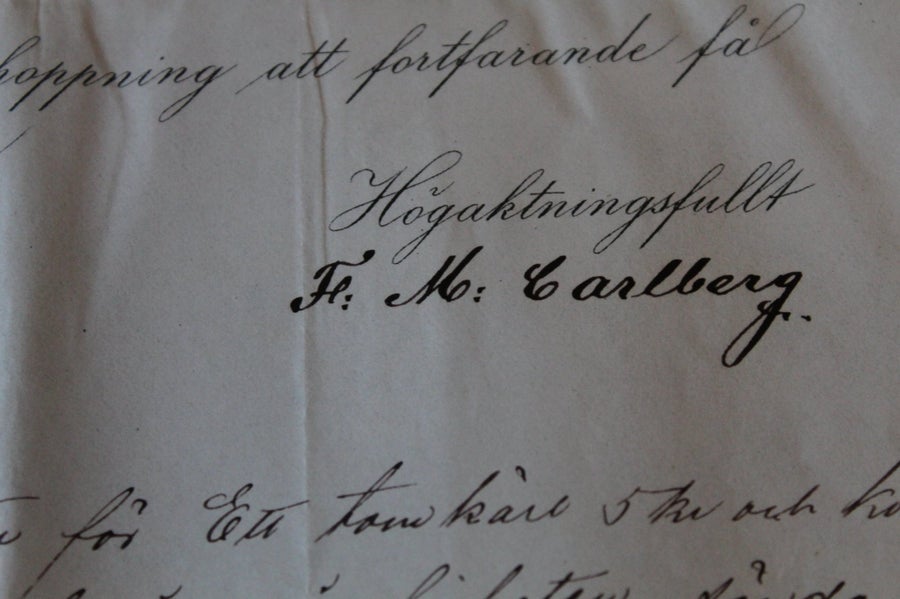 hoppning att fortfarande få
Högaktningsfullt
F. M: Carlberg.
för Ett tomkärl 5 kr och